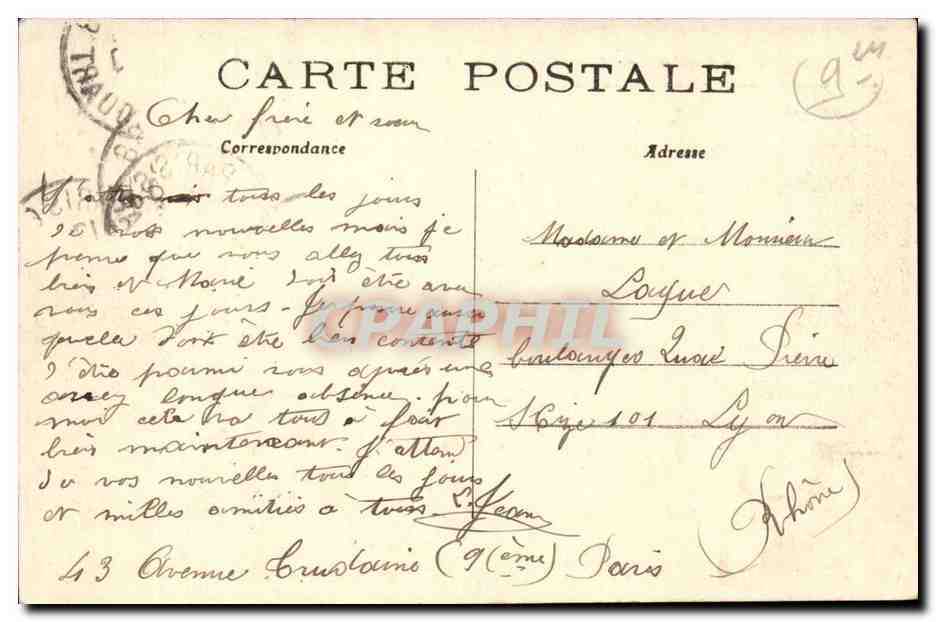 CARTE POSTALE
9
Cher frère et sœur
Correspondance
Adresse
J'attend tous les jours
de vos nouvelles mais je
pense que vous allez tous
bien et Marie doit être avec
vous ces jours. Je pense aussi
quelle doit être bien contente
d'être parmi vous après une
assez longue absence. pour
moi cela va tous à fait
bien maintenant. J'attend
de vos nouvelles tous les jours
et milles amitiés à tous. L. Jean
43 Avenue Trudaine (9ème) Paris
Madame et Monsieur
Lague
boulanger Quai Pierre
Scize 101 Lyon
(Rhône)
TRAUDR
CPAPHIL